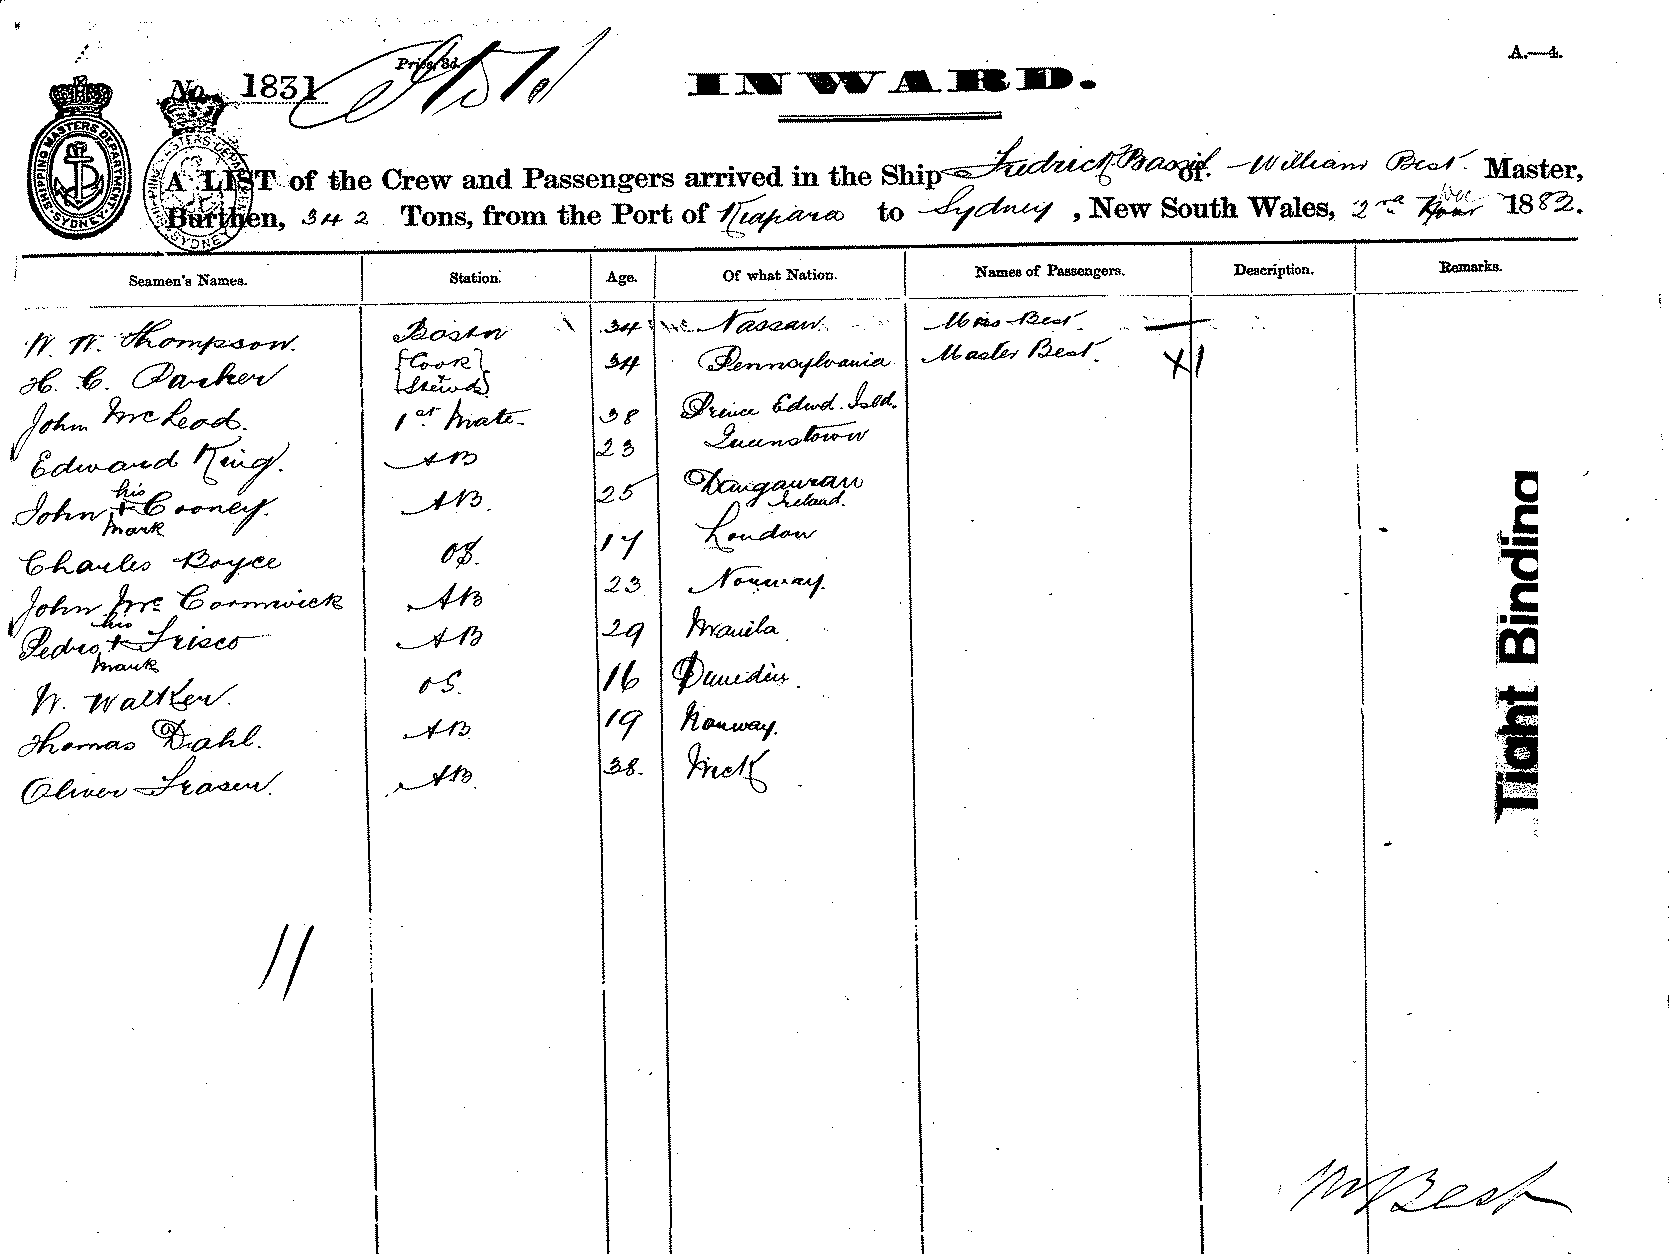 A.—4.
Price, 3d.
No. 1831
INWARD.
SHIPPING MASTERS DEPARTMENT SYDNEY
A LIST of the Crew and Passengers arrived in the Ship Fredrick Bassil of William Best Master,
Burthen, 342 Tons, from the Port of Kiapara to Sydney, New South Wales, 2nd Dec 1882.
Seamen's Names. Station. Age. Of what Nation. Names of Passengers. Description. Remarks.
W. W. Thompson. Bosun 34 Nassau. Mrs Best.
H. C. Parker {Cook} {Stewd} 34 Pennsylvania Master Best. X1
John McLeod. 1st Mate. 38 Prince Edwd. Isld.
Edward King. AB 23 Queenstown
John his + mark Cooney. AB. 25 Dungarvan Ireland.
Charles Boyce OS. 17 London
John Mc Cormwick AB 23 Norway.
Pedro his + mark Frisco AB 29 Manila.
W. Walker. OS. 16 Dunedin.
Thomas Dahl. AB 19 Norway.
Oliver Fraser. AB 38. Wick
11
Tight Binding
W Best